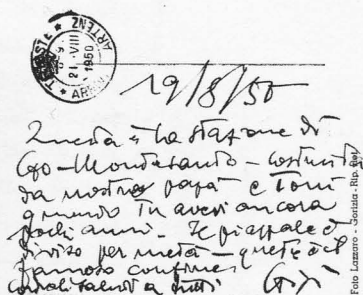 TRIESTE * ARRIVI * PARTENZ
21.VIII
1950
19/8/50
Questa è la stazione di
Go-Montesanto - costruita
da nostro papà e Toni
quando tu avevi ancora
pochi anni. Il piazzale è
diviso per metà - questo è il
famoso confine
Cordiali saluti a tutti
Foto Lazzaro - Gorizia - Rip.